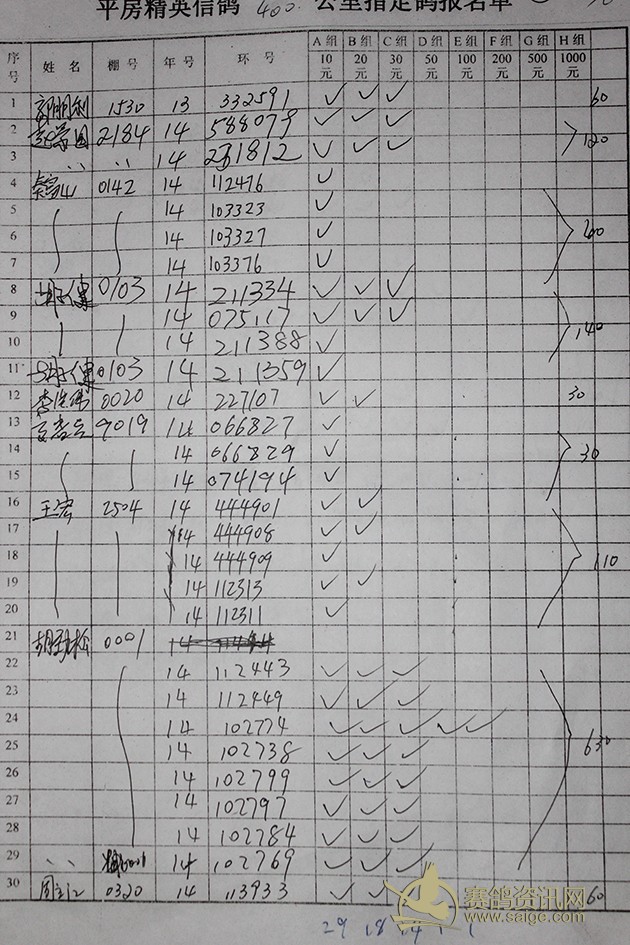 平房精英信鸽 400 公里指定鸽报名单
序号 姓名 棚号 年号 环号 A组 10元 B组 20元 C组 30元 D组 50元 E组 100元 F组 200元 G组 500元 H组 1000元
1 1530 13 332591 ✓ ✓ ✓ 60
2 2184 14 588079 ✓ ✓ ✓ 120
3 〃 〃 14 1812 ✓ ✓ ✓
4 0142 14 112476 ✓
5 14 103323 ✓
6 14 103327 ✓
7 14 103376 ✓
8 0103 14 211334 ✓ ✓ ✓
9 14 075117 ✓ ✓ ✓
10 14 211388 ✓ 140
11 0103 14 211359 ✓
12 0020 14 227107 ✓ ✓ 30
13 9019 14 066827 ✓
14 14 066829 ✓ 30
15 14 074194 ✓
16 王宏 2504 14 444901 ✓ ✓
17 14 444908 ✓ ✓
18 14 444909 ✓ 110
19 14 112313 ✓ ✓
20 14 112311 ✓
21 胡劲松 0001
22 14 112443 ✓ ✓ ✓
23 14 112449 ✓ ✓ ✓
24 14 102774 ✓ ✓ ✓ ✓ ✓
25 14 102738 ✓ ✓ ✓ 630
26 14 102799 ✓ ✓ ✓
27 14 102797 ✓ ✓ ✓
28 14 102784 ✓ ✓ ✓
29 〃 14 102769 ✓ ✓ ✓
30 0320 14 113933 ✓ ✓ 60
赛鸽资讯网
www.saige.com
29 18